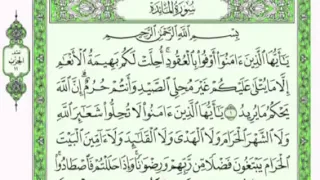 سورة المائدة
بسم الله الرحمن الرحيم
يَٰٓأَيُّهَا ٱلَّذِينَ ءَامَنُوٓا۟ أَوْفُوا۟ بِٱلْعُقُودِ أُحِلَّتْ لَكُم بَهِيمَةُ ٱلْأَنْعَٰمِ
إِلَّا مَا يُتْلَىٰ عَلَيْكُمْ غَيْرَ مُحِلِّى ٱلصَّيْدِ وَأَنتُمْ حُرُمٌ إِنَّ ٱللَّهَ
يَحْكُمُ مَا يُرِيدُ ١ يَٰٓأَيُّهَا ٱلَّذِينَ ءَامَنُوا۟ لَا تُحِلُّوا۟ شَعَٰٓئِرَ ٱللَّهِ
وَلَا ٱلشَّهْرَ ٱلْحَرَامَ وَلَا ٱلْهَدْىَ وَلَا ٱلْقَلَٰٓئِدَ وَلَآ ءَآمِّينَ ٱلْبَيْتَ
ٱلْحَرَامَ يَبْتَغُونَ فَضْلًا مِّن رَّبِّهِمْ وَرِضْوَٰنًا وَإِذَا حَلَلْتُمْ فَٱصْطَادُوا۟